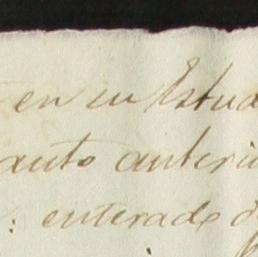 en su Estud
auto anterio
: enterado d